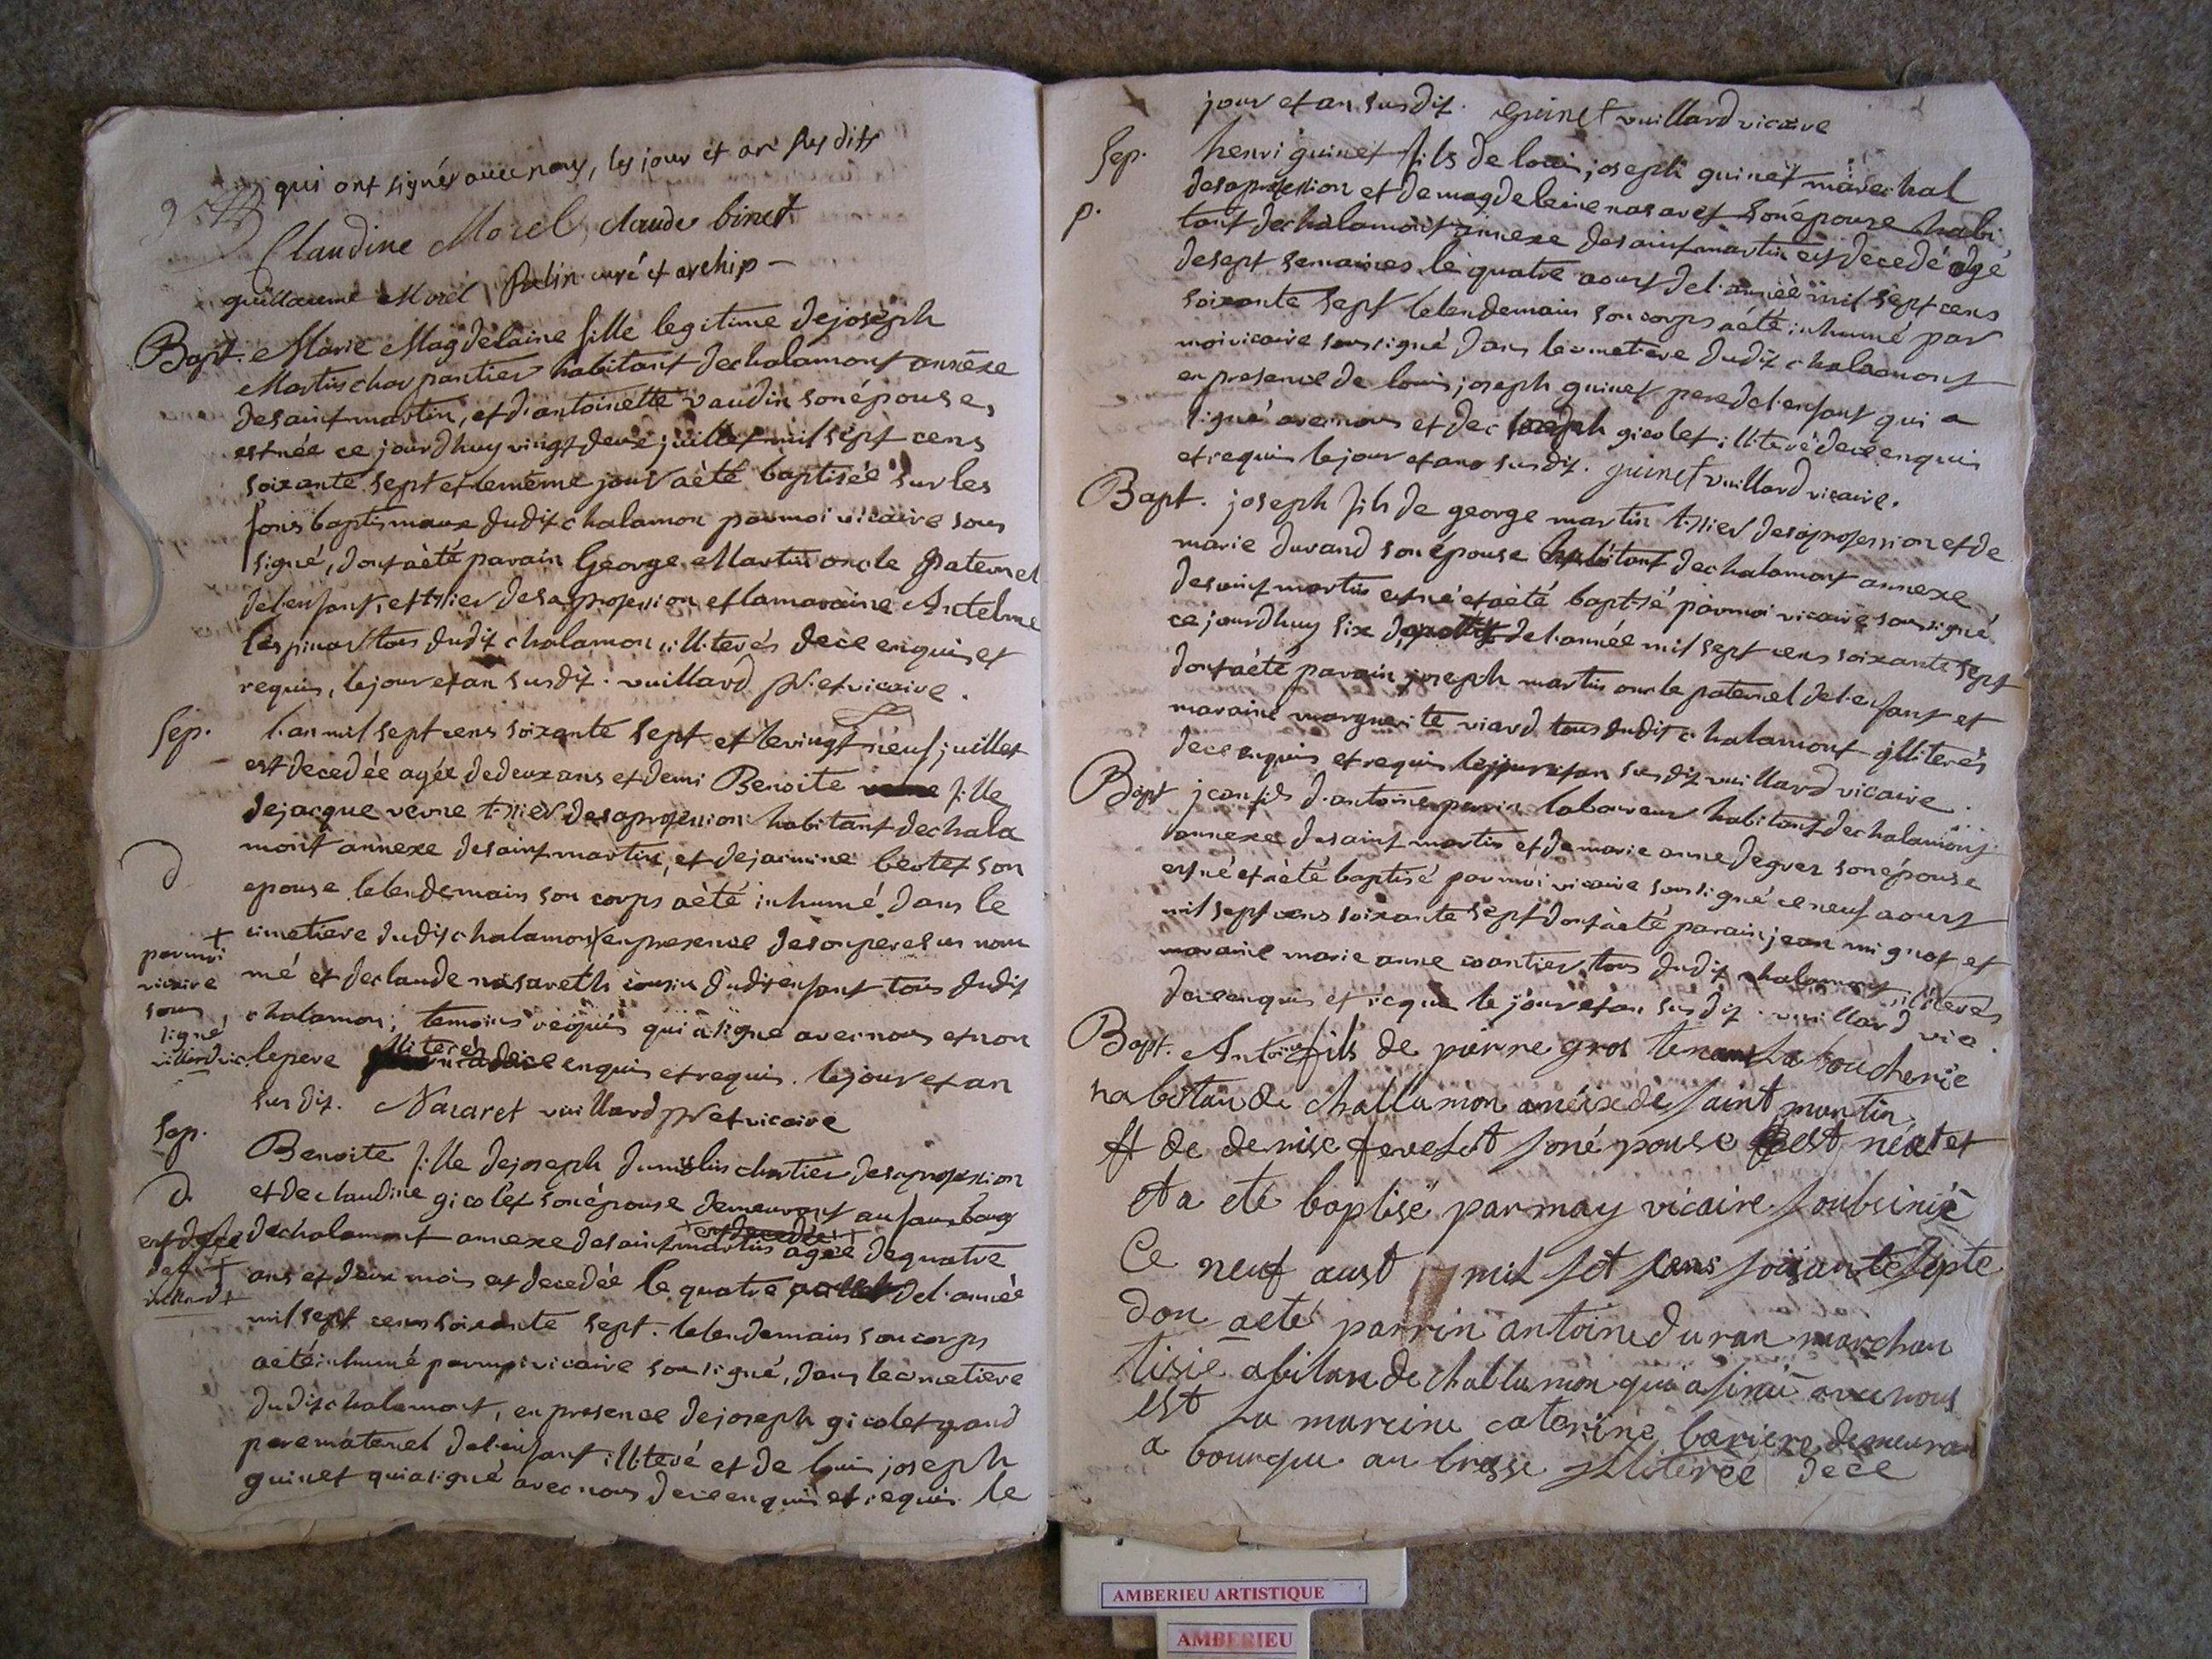 qui ont signés avec nous, les jour et an sus dits
Claudine Morel, claude binet
guillaume Morel curé et archip -
Bapt. Marie Magdelaine fille legitime de joseph
Martin charpantier habitant de chalamont annèxe
de saint martin, et d'antoinette vaudin son épouse,
est née ce jourd huy vingt deux juillet mil sept cens
soixante sept et le même jour a èté baptisée sur les
fons baptismaux dudit chalamon par moi vicaire sous
signé, dont a èté parain George Martin oncle paternel
de l'enfant, et tisier de sa profession et la maraine Antelme
tous dudit chalamon, illiterés de ce enquis et
requis, le jour et an susdit. vuillard ptre et vicaire.
Sep. l'an mil sept cens soixante sept et le vingt neuf juillet
est decedée agée de deux ans et demi Benoite fille
de jacque verne tisier de sa profession habitant de chala
mont annèxe de saint martin, et de jacmine bertet son
d
epouse le lendemain son corps a èté inhumé dans le
cimetiere dudit chalamont en presence de son pere sus nom
+ par moi vicaire sous signé vuillard vic.
mé et de claude nasareth cousin dudit enfant tous dudit
chalamon, temoins requis qui a signe avec nous et non
le pere illiterés de ce enquis et requis. le jour et an
sus dit. Nazaret vuillard ptre et vicaire
Sep. Benoite fille de joseph dumoulin chartier de sa profession
d.
et de claudine gicolet son épouse demeurant au faux bourg
de chalamont annexe de saint martin agée de quatre
ans et deux mois est decedée le quatre de l'année
mil sept cens soixante sept. le lendemain son corps
a èté inhumé par moi vicaire sou signé, dans le cimetiere
dudit chalamont, en presence de joseph gicolet grand
pere maternel de l'enfant illiteré et de louis joseph
guinet qui a signé avec nous de ce enquis et requis le
jour et an susdit. guinet vuillard vicaire
Sep. henri guinet fils de louis joseph guinet marechal
de sa profession et de magdeleine nasaret son épouse habi
p.
tant de chalamont annexe de saint martin est decedé agé
de sept semaines le quatre aoust de l'année mil sept cens
soixante sept le lendemain son corps a èté inhumé par
moi vicaire soussigné dans le cimetiere dudit chalamont
en presence de louis joseph guinet pere de l'enfant qui a
signé avec nous et de joseph gicolet illiteré de ce enquis
et requis le jour et an susdit. guinet vuillard vicaire.
Bapt. joseph fils de george martin tisier de sa profession et de
marie durand son épouse habitant de chalamont annexe
de saint martin est né et a èté baptisé par moi vicaire soussigné
ce jourdhuy six de l'année mil sept cens soixante sept
dont a èté parain joseph martin oncle paternel de l'enfant et
maraine marguerite viard tous dudit chalamont illiterés
de ce enquis et requis le jour et an susdit vuillard vicaire.
Bapt jean fils d'antoine perrin laboureur habitant de chalamont
annexe de saint martin et de marie anne degrez son épouse
est né et a èté baptisé par moi vicaire sous signé ce neuf aoust
mil sept cens soixante sept dont a èté parain jean mignot et
maraine marie anne coantier tous dudit chalamont illiterés
de ce enquis et requis le jour et an sus dit. vuillard vic.
Bapt. Antoine fils de pierre gros tenant la boucherie
habitan de challamon anéixe de saint martin
et de denise fevelet son é pouse est né et et
et a eté baptisé par moy vicaire soubsinié
Ce neuf aust mil set sans soisante septe
don aeté parrin antoine duran marchan
tisie abitan de challamon qui a sinié avec nous
est la mareine caterine bariere demeuran
a bourque an brese illiterée de ce
AMBERIEU ARTISTIQUE
AMBERIEU